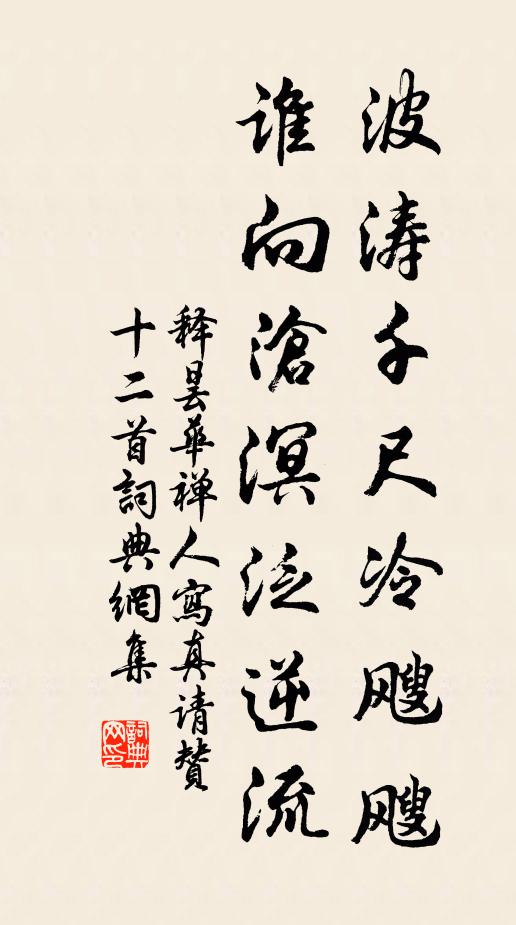 波涛千尺冷飕飕
谁向滄溟泛逆流
释昙华禅人寫真请赞
十二首詞典網集
詞典
网印